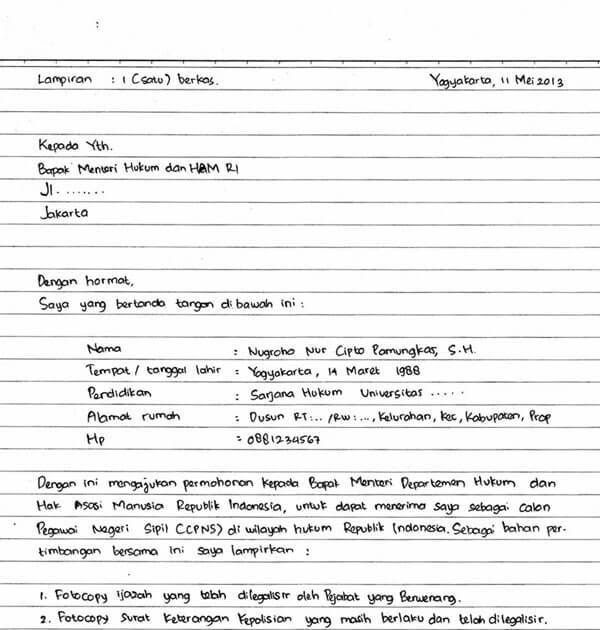 Lampiran : 1 (satu) berkas. Yogyakarta, 11 Mei 2013
Kepada Yth.
Bapak Menteri Hukum dan HAM RI
Jl. .......
Jakarta
Dengan hormat,
Saya yang bertanda tangan dibawah ini :
Nama : Nugroho Nur Cipto Pamungkas, S.H.
Tempat / tanggal lahir : Yogyakarta, 14 Maret 1988
Pendidikan : Sarjana Hukum Universitas .....
Alamat rumah : Dusun RT:... /RW:..., Kelurahan, Kec, Kabupaten, Prop
Hp : 0881234567
Dengan ini mengajukan permohonan kepada Bapak Menteri Departemen Hukum dan
Hak Asasi Manusia Republik Indonesia, untuk dapat menerima saya sebagai calon
Pegawai Negeri Sipil (CPNS) di wilayah hukum Republik Indonesia. Sebagai bahan per-
timbangan bersama ini saya lampirkan :
1. Fotocopy ijazah yang telah dilegalisir oleh Pejabat yang Berwenang.
2. Fotocopy Surat Keterangan Kepolisian yang masih berlaku dan telah dilegalisir.